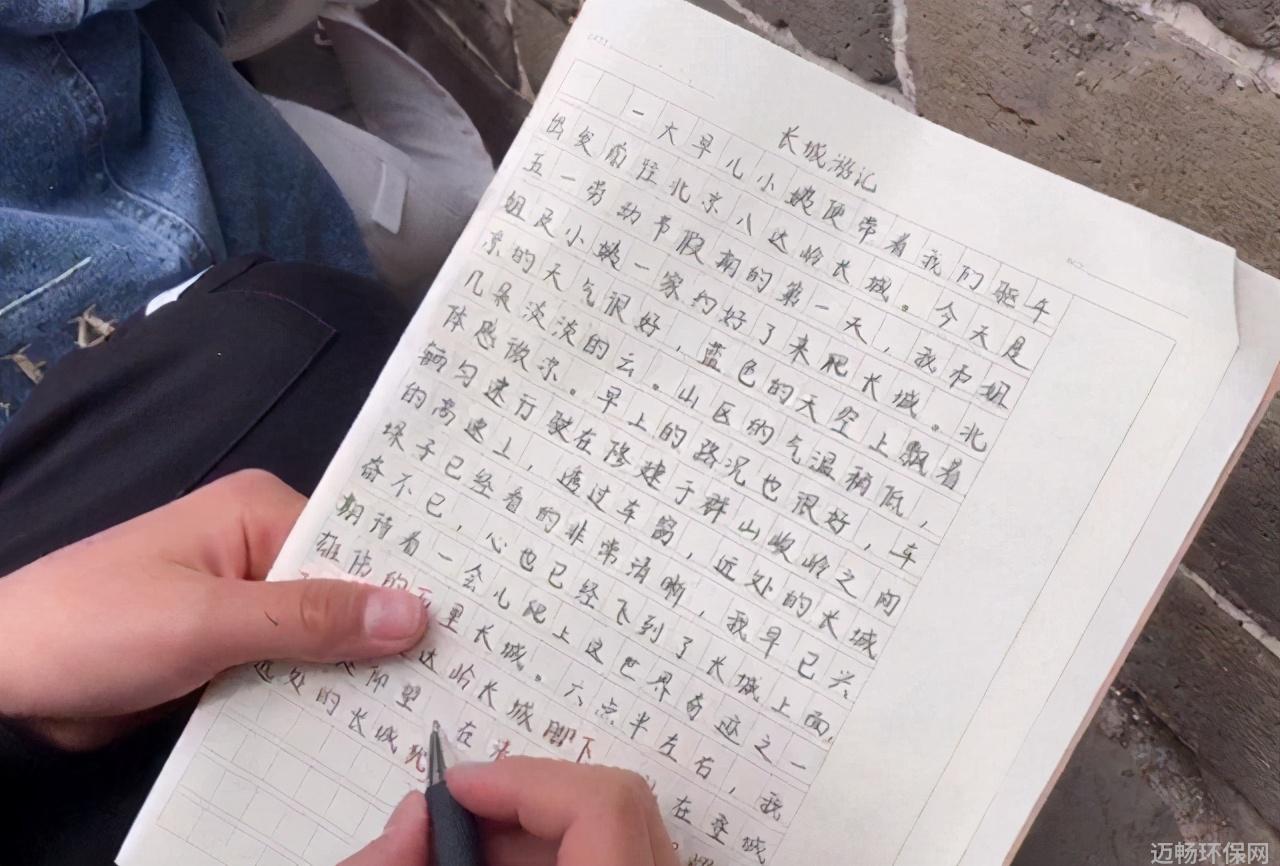 长城游记
一大早儿小姨便带着我们驱车
出发前往北京八达岭长城。今天是
五一劳动节假期的第一天，我和姐
姐及小姨一家约好了来爬长城。北
京的天气很好，蓝色的天空上飘着
几朵淡淡的云。山区的气温稍低，
体感微凉。早上的路况也很好，车
辆匀速行驶在修建于群山峻岭之间
的高速上，透过车窗，远处的长城
垛子已经看的非常清晰，我早已兴
奋不已，心也已经飞到了长城上面，
期待着一会儿爬上这世界奇迹之一
雄伟的万里长城。六点半左右，我
达岭长城脚下
仰望 在 在登城
远处的长城犹
迈畅环保网